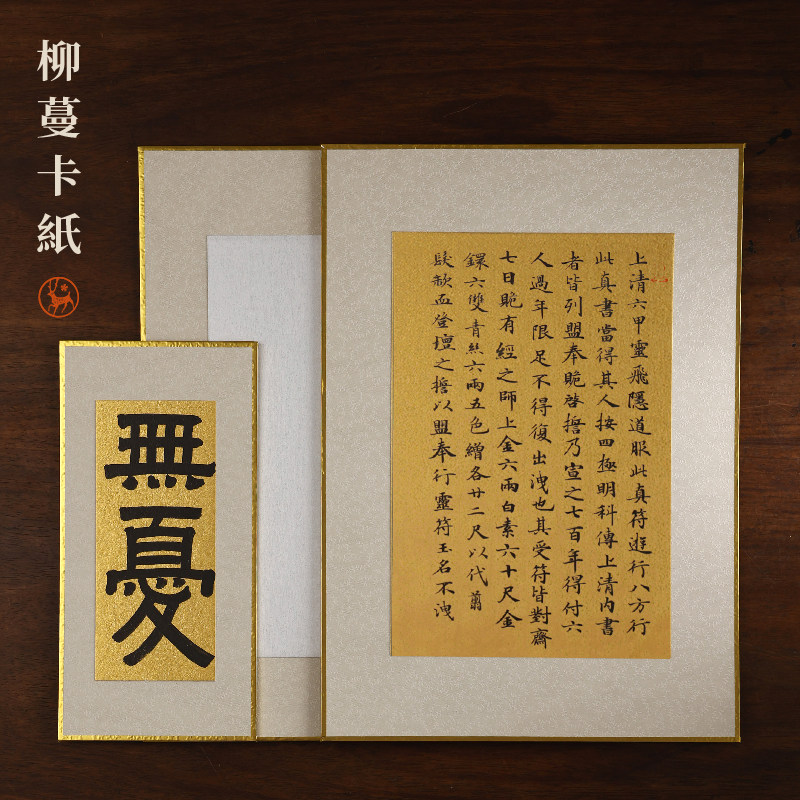 柳蔓卡紙
無憂
上清六甲靈飛隱道服此真符遊行八方行
此真書當得其人按四極明科傳上清內書
者皆列盟奉貤啓擔乃宣之七百年得付六
人過年限足不得復出洩也其受符皆對齋
七日貤有經之師上金六兩白素六十尺金
鐶六雙青絲六兩五色繒各廿二尺以代翦
髮歃血登壇之擔以盟奉行靈符玉名不洩